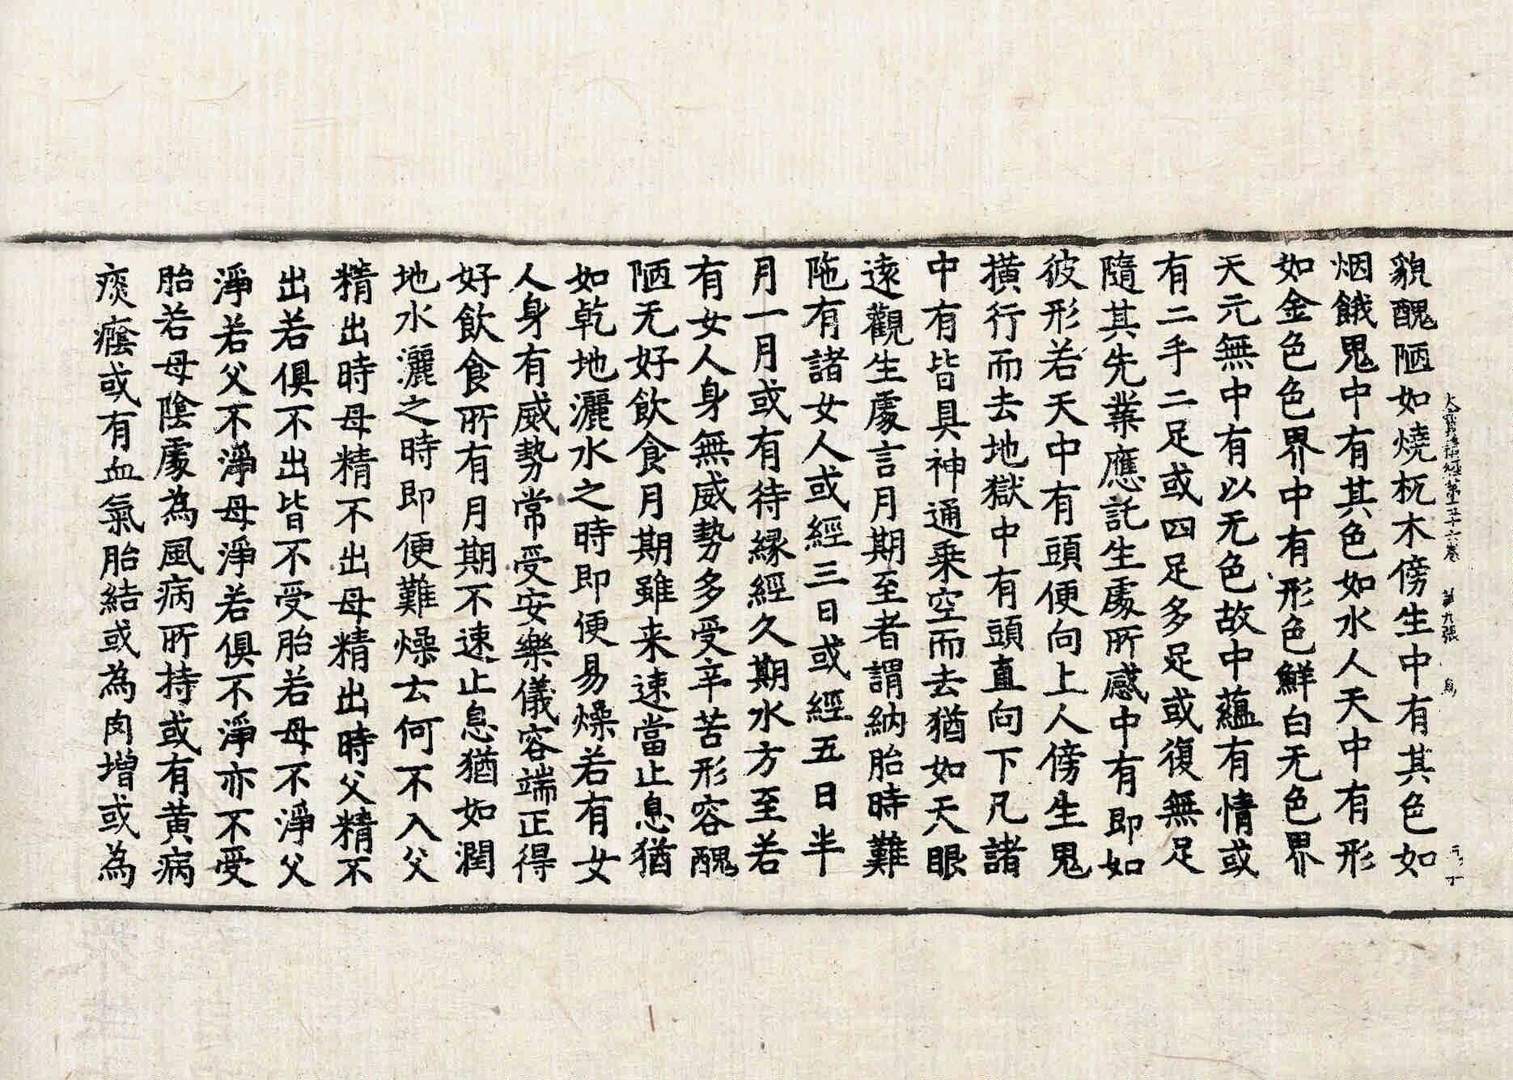 大寶積經第五十六卷 第九張 鳥
貌醜陋如燒杌木傍生中有其色如
烟餓鬼中有其色如水人天中有形
如金色色界中有形色鮮白无色界
天元無中有以无色故中蘊有情或
有二手二足或四足多足或復無足
隨其先業應託生處所感中有即如
彼形若天中有頭便向上人傍生鬼
橫行而去地獄中有頭直向下凡諸
中有皆具神通乘空而去猶如天眼
遠觀生處言月期至者謂納胎時難
陁有諸女人或經三日或經五日半
月一月或有待緣經久期水方至若
有女人身無威勢多受辛苦形容醜
陋无好飲食月期雖来速當止息猶
如乾地灑水之時即便易燥若有女
人身有威勢常受安樂儀容端正得
好飲食所有月期不速止息猶如潤
地水灑之時即便難燥云何不入父
精出時母精不出母精出時父精不
出若俱不出皆不受胎若母不淨父
淨若父不淨母淨若俱不淨亦不受
胎若母陰處為風病所持或有黃病
痰癊或有血氣胎結或為肉增或為